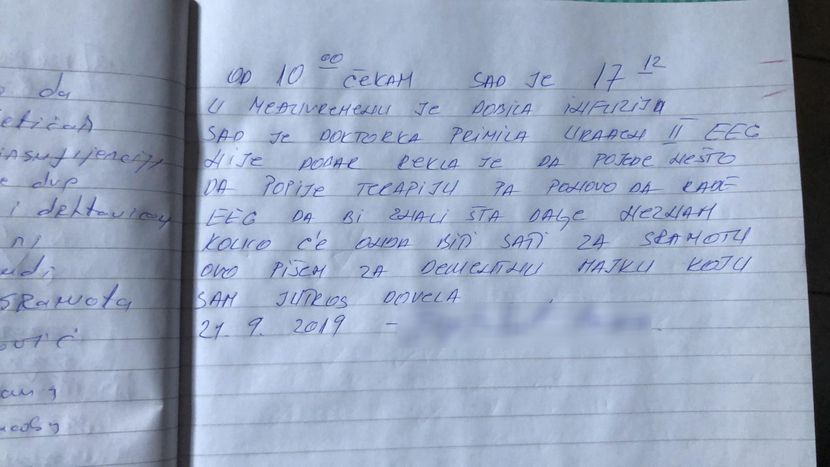 da
OD 10 00 ČEKAM SAD JE 17 12
U MEĐUVREMENU JE DOBILA INFUZIJU
SAD JE DOKTORKA PRIMILA URAĐEN II EEG
NIJE DOBAR REKLA JE DA POJEDE NEŠTO
DA POPIJE TERAPIJU PA PONOVO DA RADE
EEG DA BI ZNALI ŠTA DALJE NEZNAM
KOLIKO ĆE ONDA BITI SATI ZA SRAMOTU
OVO PIŠEM ZA DEMENTNU MAJKU KOJU
SAM JUTROS DOVELA
21. 9. 2019 -
i drktavicom
ni
SRAMOTA